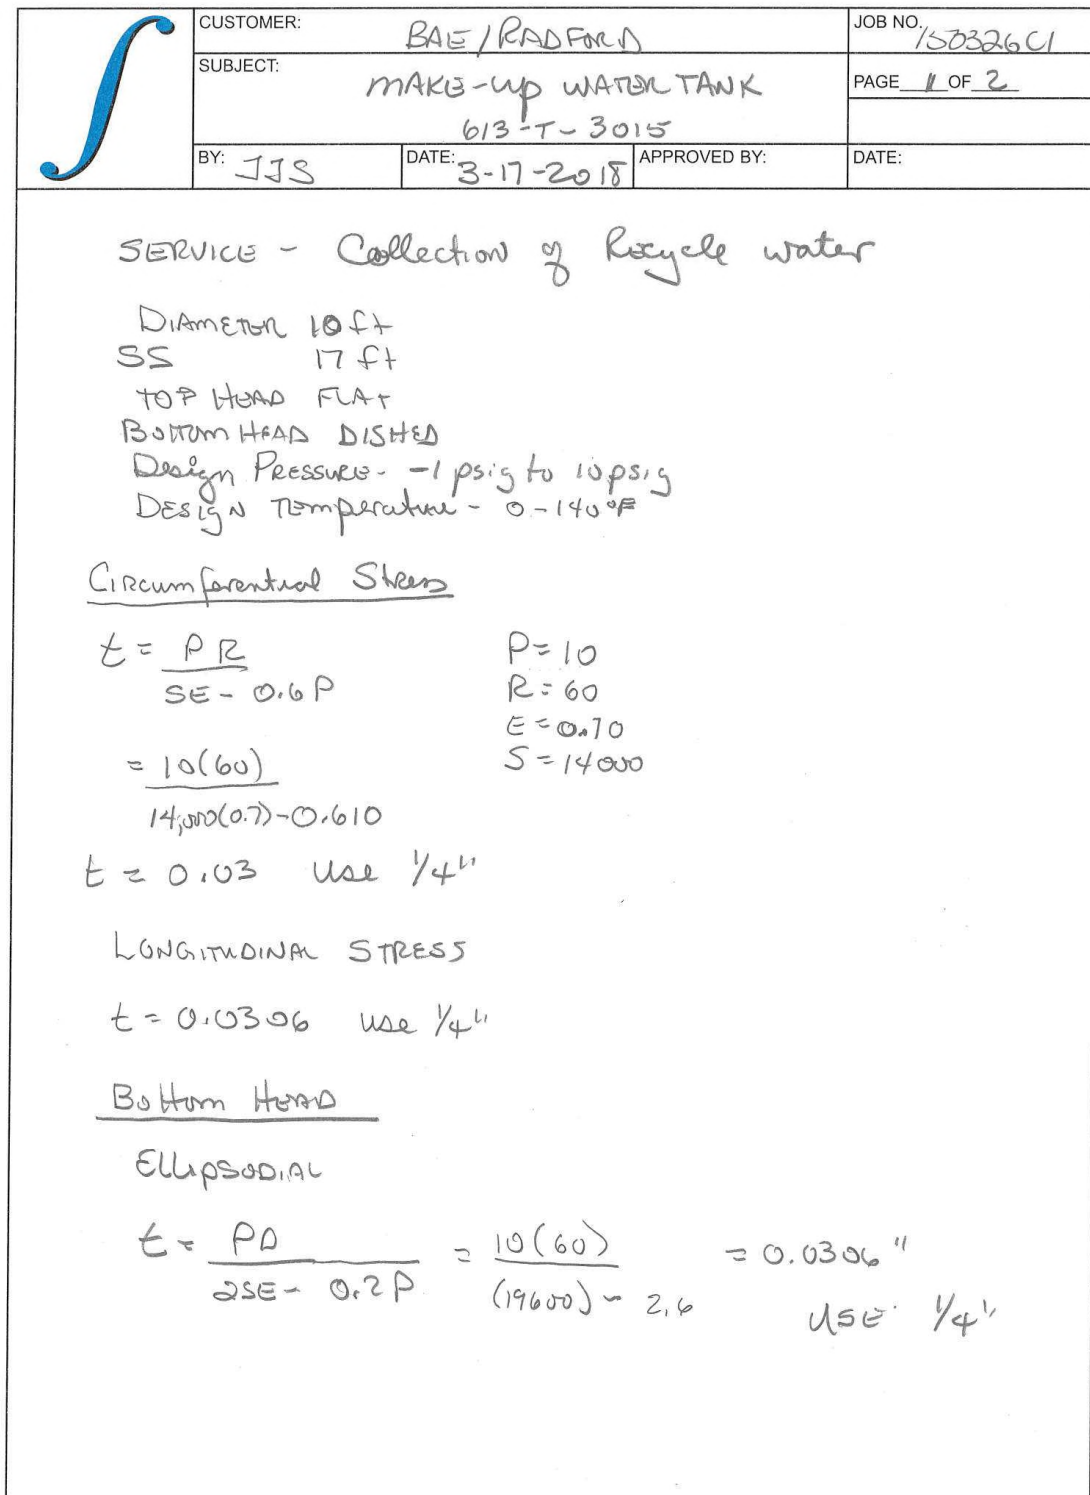 CUSTOMER: BAE/RADFORD
JOB NO. 150326C1
SUBJECT: MAKE-UP WATER TANK
613-T-3015
PAGE 1 OF 2
BY: JJS
DATE: 3-17-2018
APPROVED BY:
DATE:
SERVICE - Collection of Recycle water
DIAMETER 10 ft
SS 17 ft
TOP HEAD FLAT
BOTTOM HEAD DISHED
Design PRESSURE - -1 psig to 10 psig
DESIGN TEMPERATURE - 0-140°F
Circumferential Stress
t = PR / SE - 0.6P
P = 10
R = 60
E = 0.70
S = 14000
= 10(60) / 14,000(0.7) - 0.610
t = 0.03 use 1/4"
LONGITUDINAL STRESS
t = 0.0306 use 1/4"
Bottom HEAD
EllipSODIAL
t = PD / 2SE - 0.2P = 10(60) / (19600) - 2.6 = 0.0306"
USE 1/4"